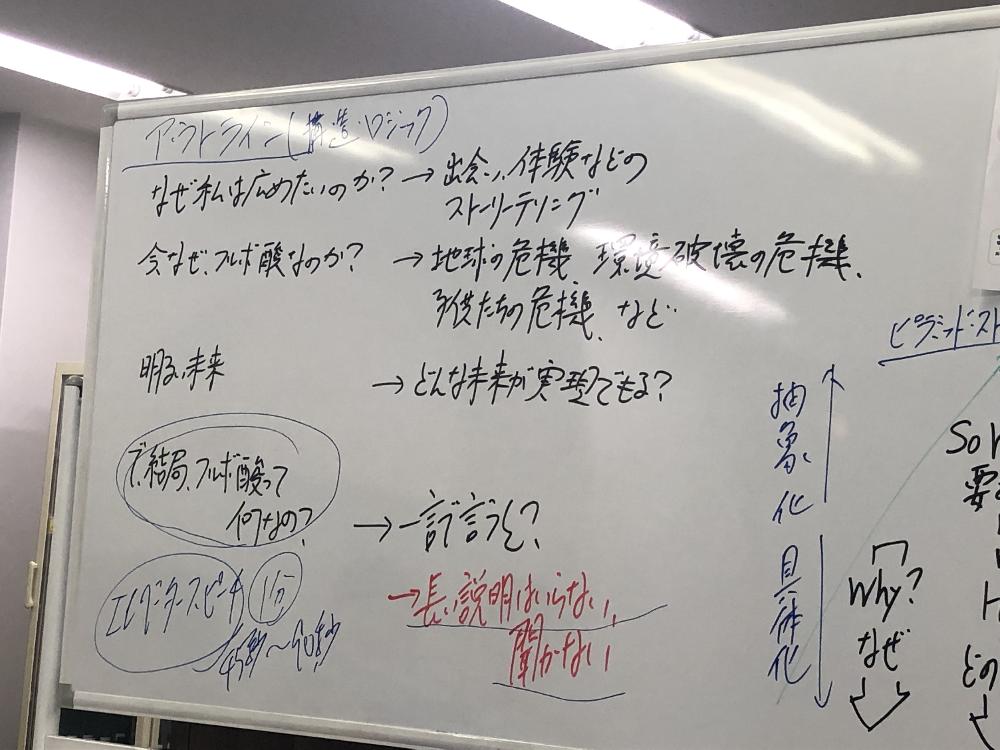 アウトライン(構造・ロジック)
なぜ私は広めたいのか? → 出会い、体験などの
ストーリーテリング
今なぜ、フルボ酸なのか? → 地球の危機、環境破壊の危機、
子供たちの危機、など
明るい未来 → どんな未来が実現できる?
で、結局、フルボ酸って
何なの? → 一言で言うと?
エレベーター・スピーチ 1分
45秒〜90秒
→長い説明はいらない、
聞かない
ピラミッド・スト
抽象化
具体化
Why?
なぜ
So
要
H
どの